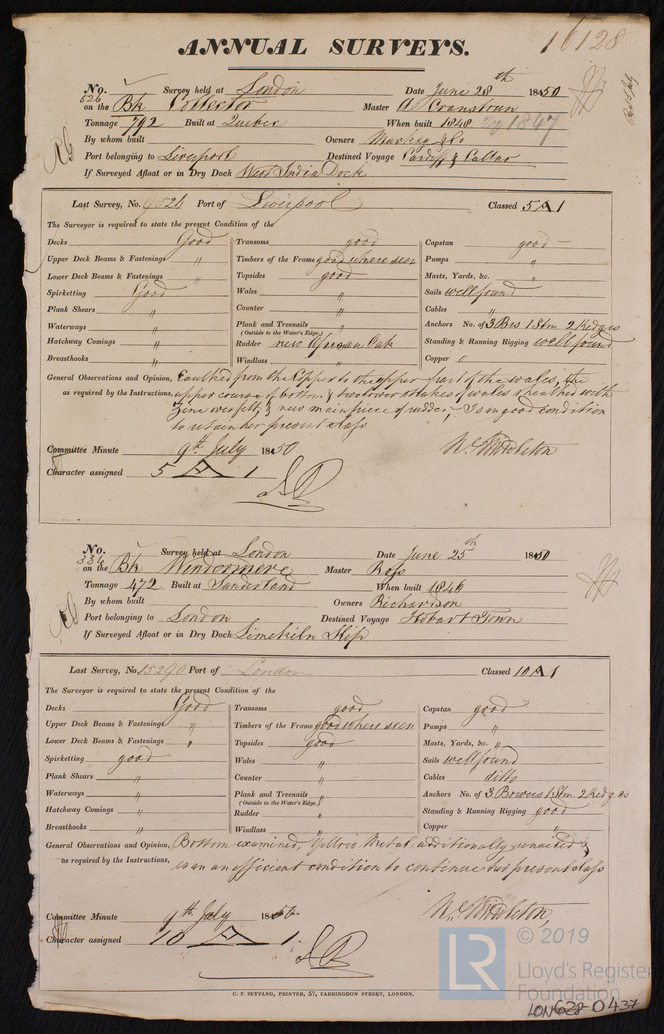 ANNUAL SURVEYS. 16128
No. 526 Survey held at London Date June 28th 1850
on the Bk Collector Master A Cranstoun
Tonnage 792 Built at Quebec When built 1848 1847
By whom built Owners
Port belonging to Liverpool Destined Voyage Cardiff & Callao
If Surveyed Afloat or in Dry Dock West India Dock
Last Survey, No. 9026 Port of Liverpool Classed 5 A 1
The Surveyor is required to state the present Condition of the
Decks Good Transoms good Capstan good
Upper Deck Beams & Fastenings " Timbers of the Frame good where seen Pumps "
Lower Deck Beams & Fastenings " Topsides good Masts, Yards, &c. "
Spirketting Good Wales " Sails well found
Plank Shears " Counter " Cables "
Waterways " Plank and Treenails " Anchors No. of 3 Brs 1 Stm 2 Kedges
(Outside to the Water's Edge.)
Hatchway Comings " Rudder new African Oak Standing & Running Rigging well found
Breasthooks " Windlass " Copper
General Observations and Opinion, Caulked from the Upper to the upper part of the wales, the
as required by the Instructions, upper course of bottm. & two lower strakes of wales sheathed with
Zinc over felt, & new mainpiece of rudder, Is in good condition
to retain her present class
Committee Minute 9th July 1850 Middleton
Character assigned 5 A 1
No. 336 Survey held at London Date June 25th 1850
on the Bk Windermere Master Ross
Tonnage 472 Built at Sunderland When built 1846
By whom built Owners Richardson
Port belonging to London Destined Voyage Hobart Town
If Surveyed Afloat or in Dry Dock Limekiln Slip
Last Survey, No. 15290 Port of London Classed 10 A 1
The Surveyor is required to state the present Condition of the
Decks Good Transoms good Capstan good
Upper Deck Beams & Fastenings " Timbers of the Frame good where seen Pumps "
Lower Deck Beams & Fastenings " Topsides good Masts, Yards, &c. "
Spirketting good Wales " Sails well found
Plank Shears " Counter " Cables ditto
Waterways " Plank and Treenails " Anchors No. of 3 Bowers 1 Stm 2 Kedges
(Outside to the Water's Edge.)
Hatchway Comings " Rudder " Standing & Running Rigging good
Breasthooks " Windlass " Copper "
General Observations and Opinion, Bottom examined, Yellow Metal additionally
as required by the Instructions, is in an efficient condition to continue her present class
Committee Minute 9th July 1850. Middleton,
Character assigned 10 A 1
C. F. SEYFANG, PRINTER, 57, FARRINGDON STREET, LONDON.
LR © 2019
Lloyd's Register
Foundation
LON628-0437